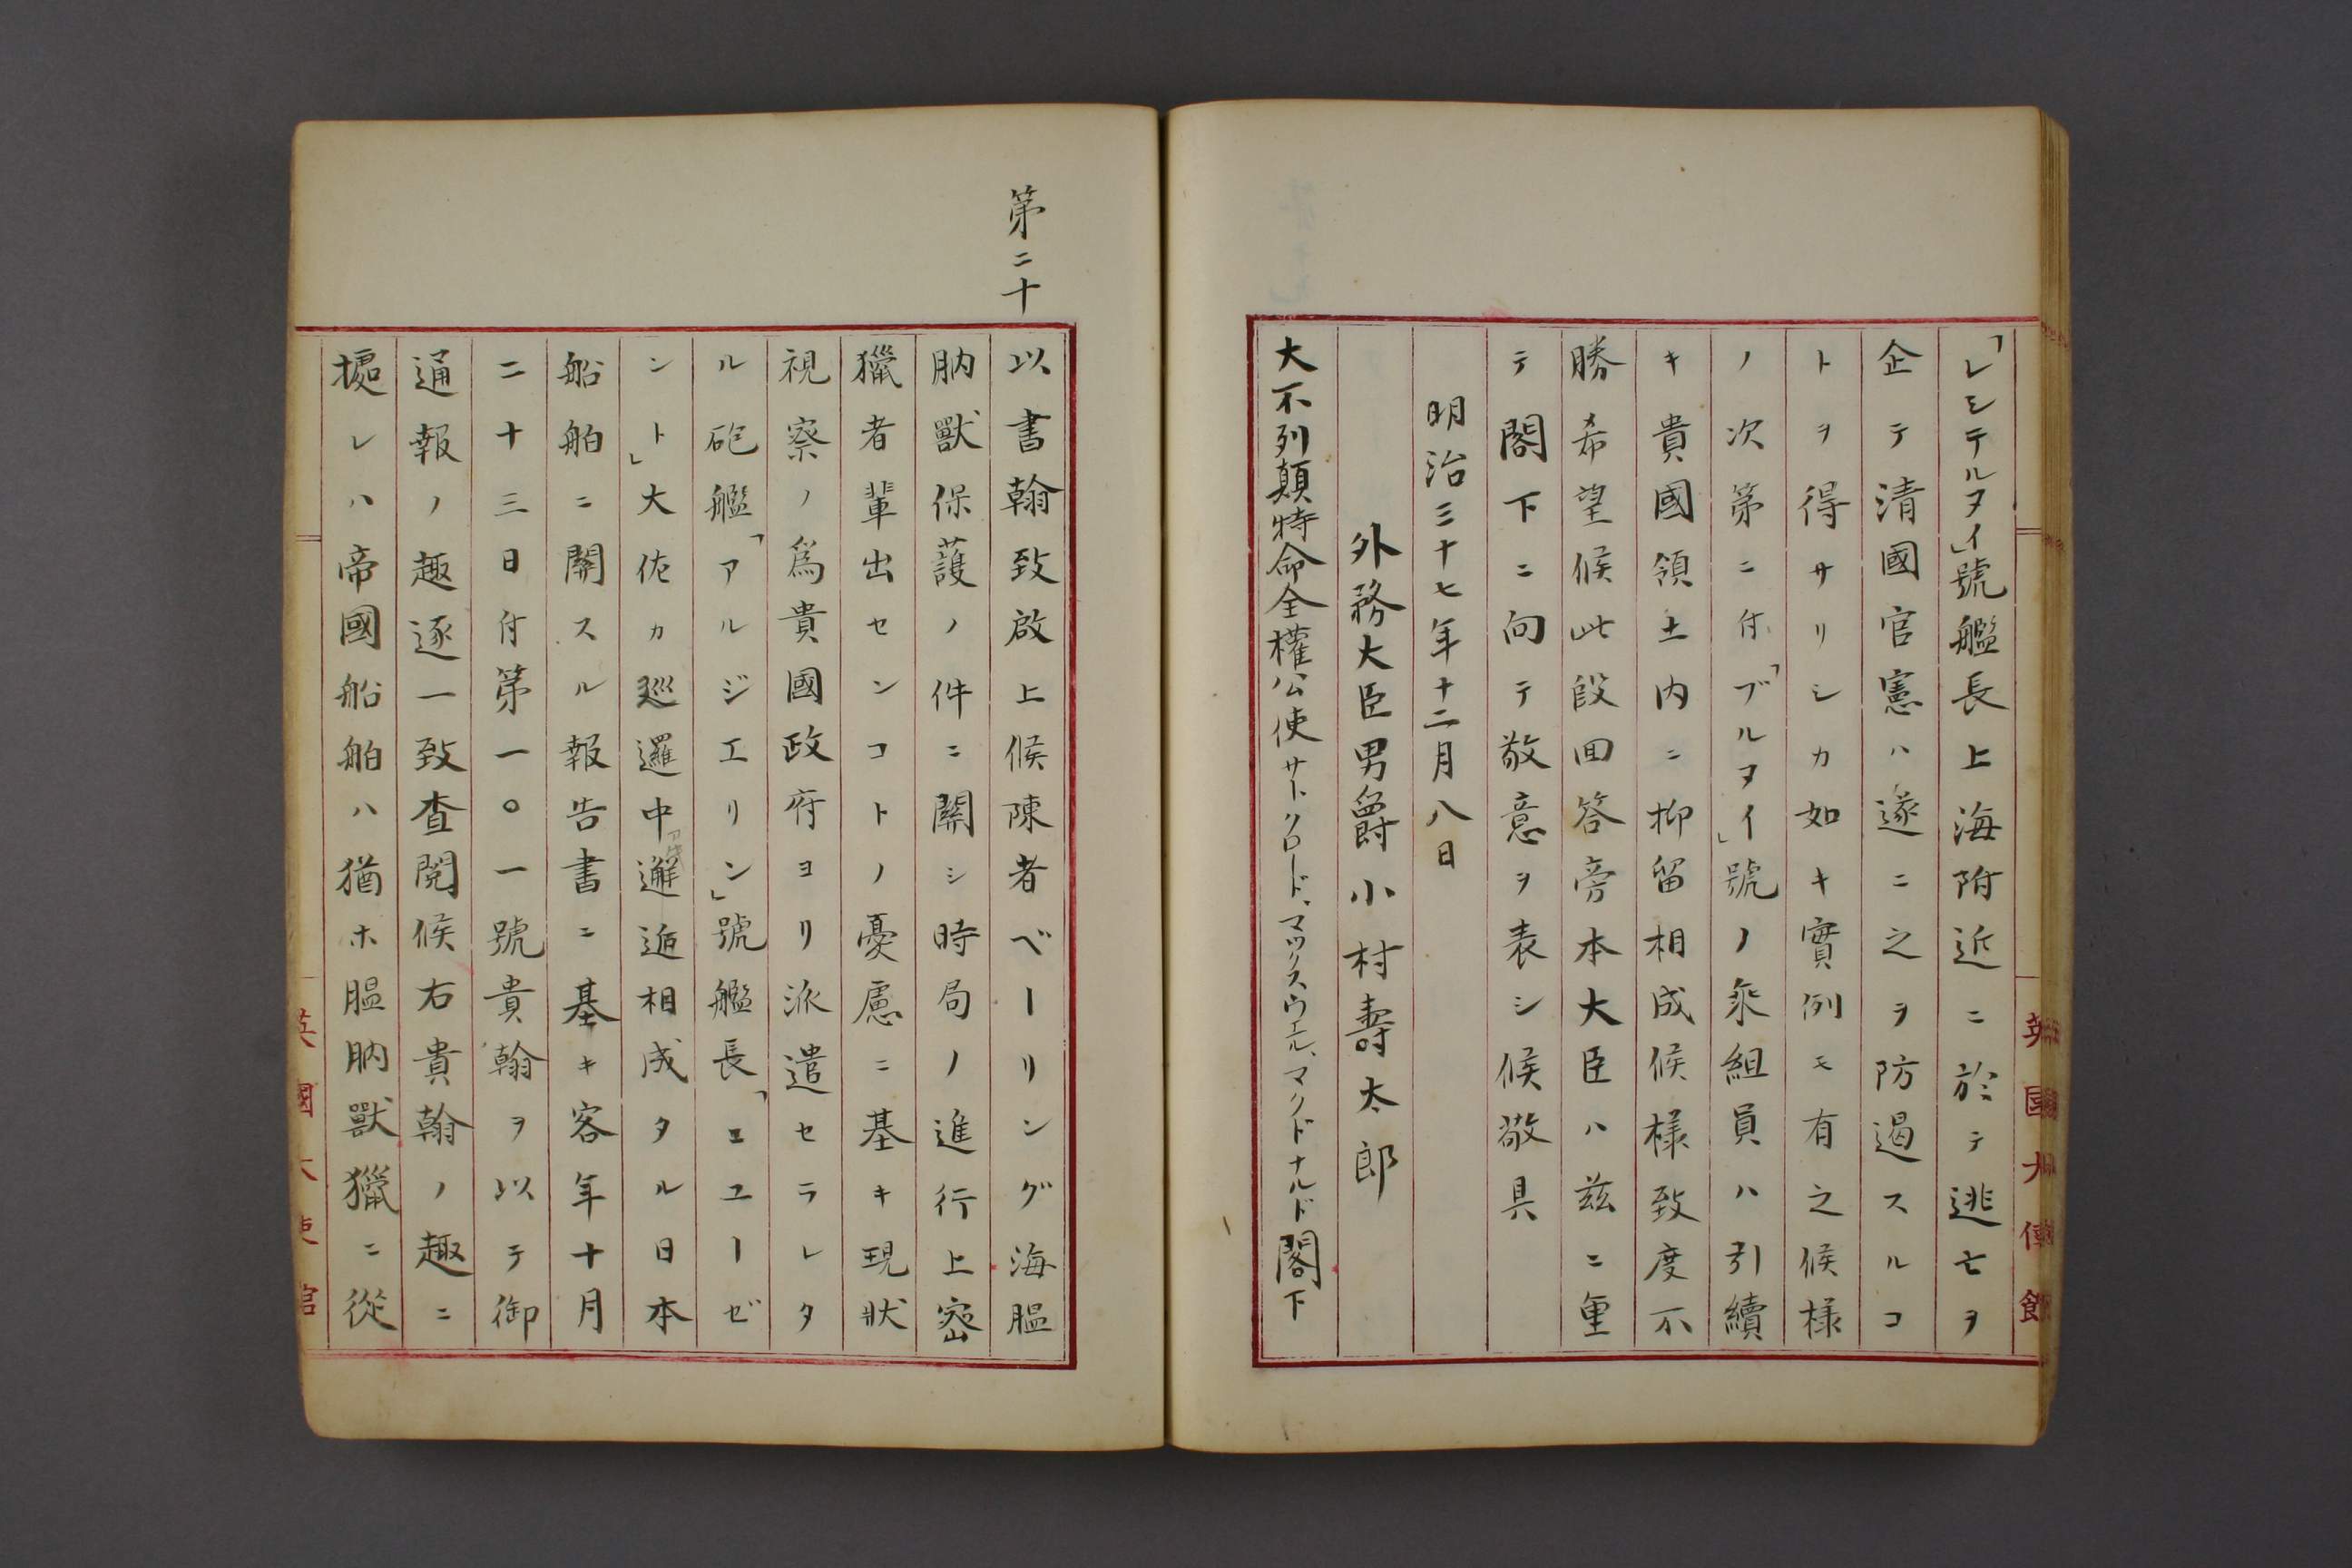 「レシテルヌイ」號艦長上海附近ニ於テ逃亡ヲ
企テ清國官憲ハ遂ニ之ヲ防遏スルコ
トヲ得サリシカ如キ實例モ有之候様
ノ次第ニ付「ブルヌイ」號ノ乘組員ハ引續
キ貴國領土内ニ抑留相成候様致度不
勝希望候此段回答旁本大臣ハ茲ニ重
テ閣下ニ向テ敬意ヲ表シ候敬具
明治三十七年十二月八日
外務大臣男爵小村壽太郎
大不列顛特命全權公使サー、クロード、マックスウエル、マクドナルド閣下
英國大使館
第二十
以書翰致啟上候陳者ベーリング海膃
肭獸保護ノ件ニ關シ時局ノ進行上密
獵者輩出センコトノ憂慮ニ基キ現狀
視察ノ爲貴國政府ヨリ派遣セラレタ
ル砲艦「アルジエリン」號艦長「エユーゼ
ント」大佐カ巡邏中邂逅相成タル日本
船舶ニ關スル報告書ニ基キ客年十月
二十三日付第一〇一號貴翰ヲ以テ御
通報ノ趣逐一致査閲候右貴翰ノ趣ニ
據レハ帝國船舶ハ猶ホ膃肭獸獵ニ從
英國大使館